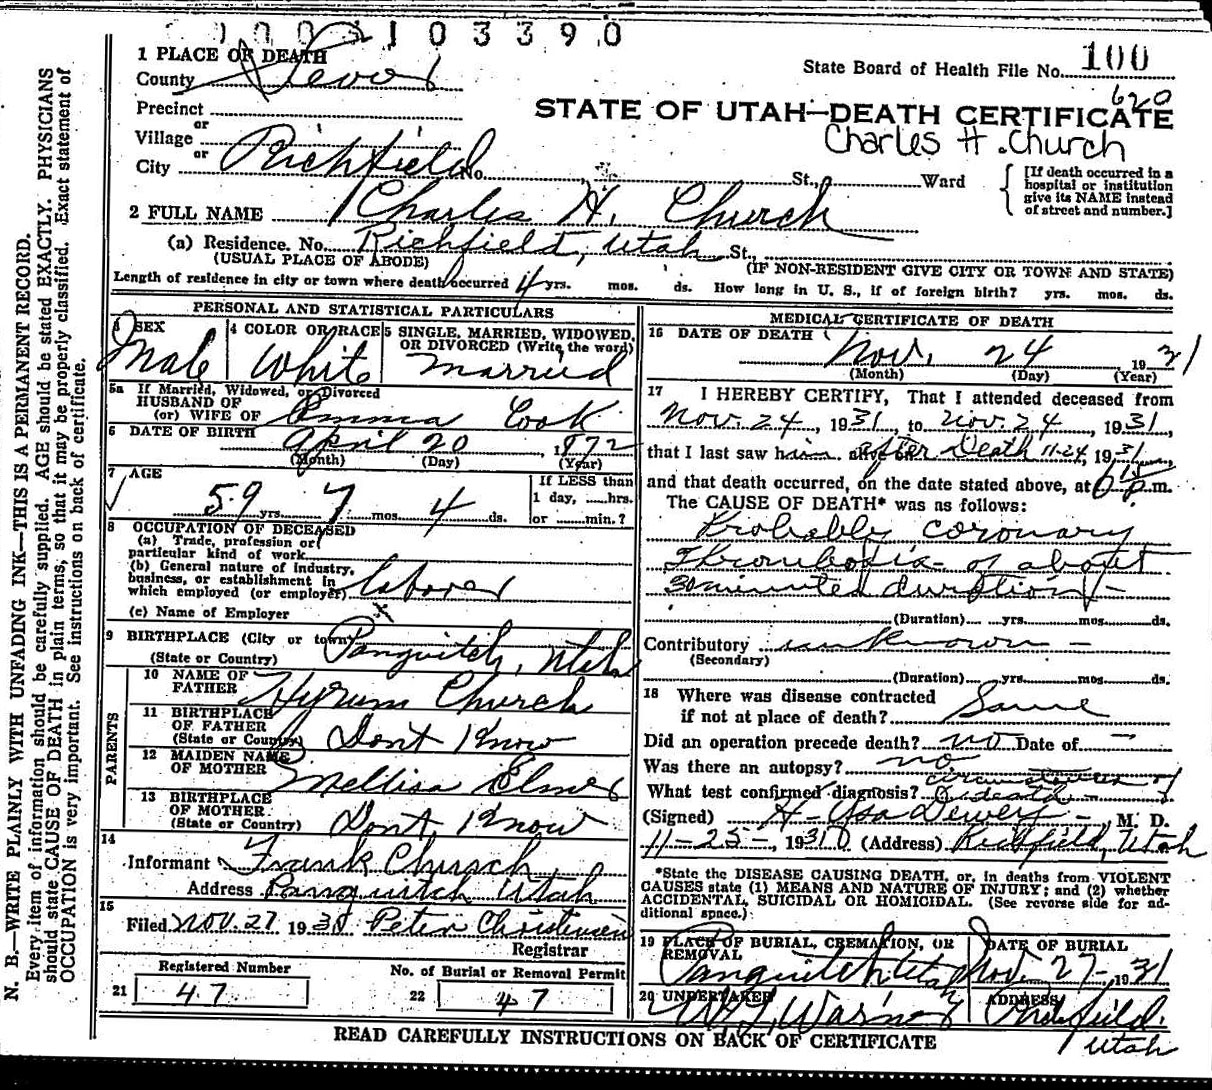 0 0 0 5 1 0 3 3 9 0
1 PLACE OF DEATH
County Sevier
State Board of Health File No. 100
620
Precinct
or
Village
or
City Richfield No. St., Ward
STATE OF UTAH—DEATH CERTIFICATE
Charles H. Church
[If death occurred in a
hospital or institution
give its NAME instead
of street and number.]
2 FULL NAME Charles H. Church
(a) Residence. No. Richfield, Utah St.,
(USUAL PLACE OF ABODE) (IF NON-RESIDENT GIVE CITY OR TOWN AND STATE)
Length of residence in city or town where death occurred 4 yrs. mos. ds. How long in U. S., if of foreign birth? yrs. mos. ds.
PERSONAL AND STATISTICAL PARTICULARS
3 SEX
Male
4 COLOR OR RACE
White
5 SINGLE, MARRIED, WIDOWED,
OR DIVORCED (Write the word)
married
5a If Married, Widowed, or Divorced
HUSBAND OF
(or) WIFE OF Emma Cook
6 DATE OF BIRTH April 20, 1872
(Month) (Day) (Year)
7 AGE
59 yrs. 7 mos. 4 ds.
If LESS than
1 day, ......hrs.
or ......min.?
8 OCCUPATION OF DECEASED
(a) Trade, profession or
particular kind of work
(b) General nature of industry,
business, or establishment in
which employed (or employer) laborer
(c) Name of Employer
9 BIRTHPLACE (City or town) Panguitch, Utah
(State or Country)
PARENTS
10 NAME OF
FATHER Hyrum Church
11 BIRTHPLACE
OF FATHER
(State or Country) Dont Know
12 MAIDEN NAME
OF MOTHER Mellisa Elmer
13 BIRTHPLACE
OF MOTHER
(State or Country) Dont Know
14
Informant Frank Church
Address Panguitch Utah
15
Filed Nov. 27 1931 Peter Christensen
Registrar
Registered Number
21 47
No. of Burial or Removal Permit
22 47
MEDICAL CERTIFICATE OF DEATH
16 DATE OF DEATH
Nov. 24 1931
(Month) (Day) (Year)
17 I HEREBY CERTIFY, That I attended deceased from
Nov. 24, 1931, to Nov. 24, 1931,
that I last saw him after Death 11-24, 1931,
and that death occurred, on the date stated above, at 6 15 p.m.
The CAUSE OF DEATH* was as follows:
Probably coronary
Thrombosis - of about
30 minutes duration -
(Duration) yrs. mos. ds.
Contributory unknown -
(Secondary)
(Duration) yrs. mos. ds.
18 Where was disease contracted
if not at place of death? Same
Did an operation precede death? no Date of -
Was there an autopsy? no
What test confirmed diagnosis? circumstances of death -
(Signed) H. Asa Dewey -, M. D.
11-25-, 1931 (Address) Richfield, Utah
*State the DISEASE CAUSING DEATH, or, in deaths from VIOLENT
CAUSES state (1) MEANS AND NATURE OF INJURY; and (2) whether
ACCIDENTAL, SUICIDAL OR HOMICIDAL. (See reverse side for ad-
ditional space.)
19 PLACE OF BURIAL, CREMATION, OR
REMOVAL
Panguitch Utah
DATE OF BURIAL
Nov. 27-, 1931
20 UNDERTAKER
ADDRESS
Richfield.
Utah
READ CAREFULLY INSTRUCTIONS ON BACK OF CERTIFICATE
N. B.—WRITE PLAINLY WITH UNFADING INK—THIS IS A PERMANENT RECORD.
Every item of information should be carefully supplied. AGE should be stated EXACTLY. PHYSICIANS
should state CAUSE OF DEATH in plain terms, so that it may be properly classified. Exact statement of
OCCUPATION is very important. See instructions on back of certificate.